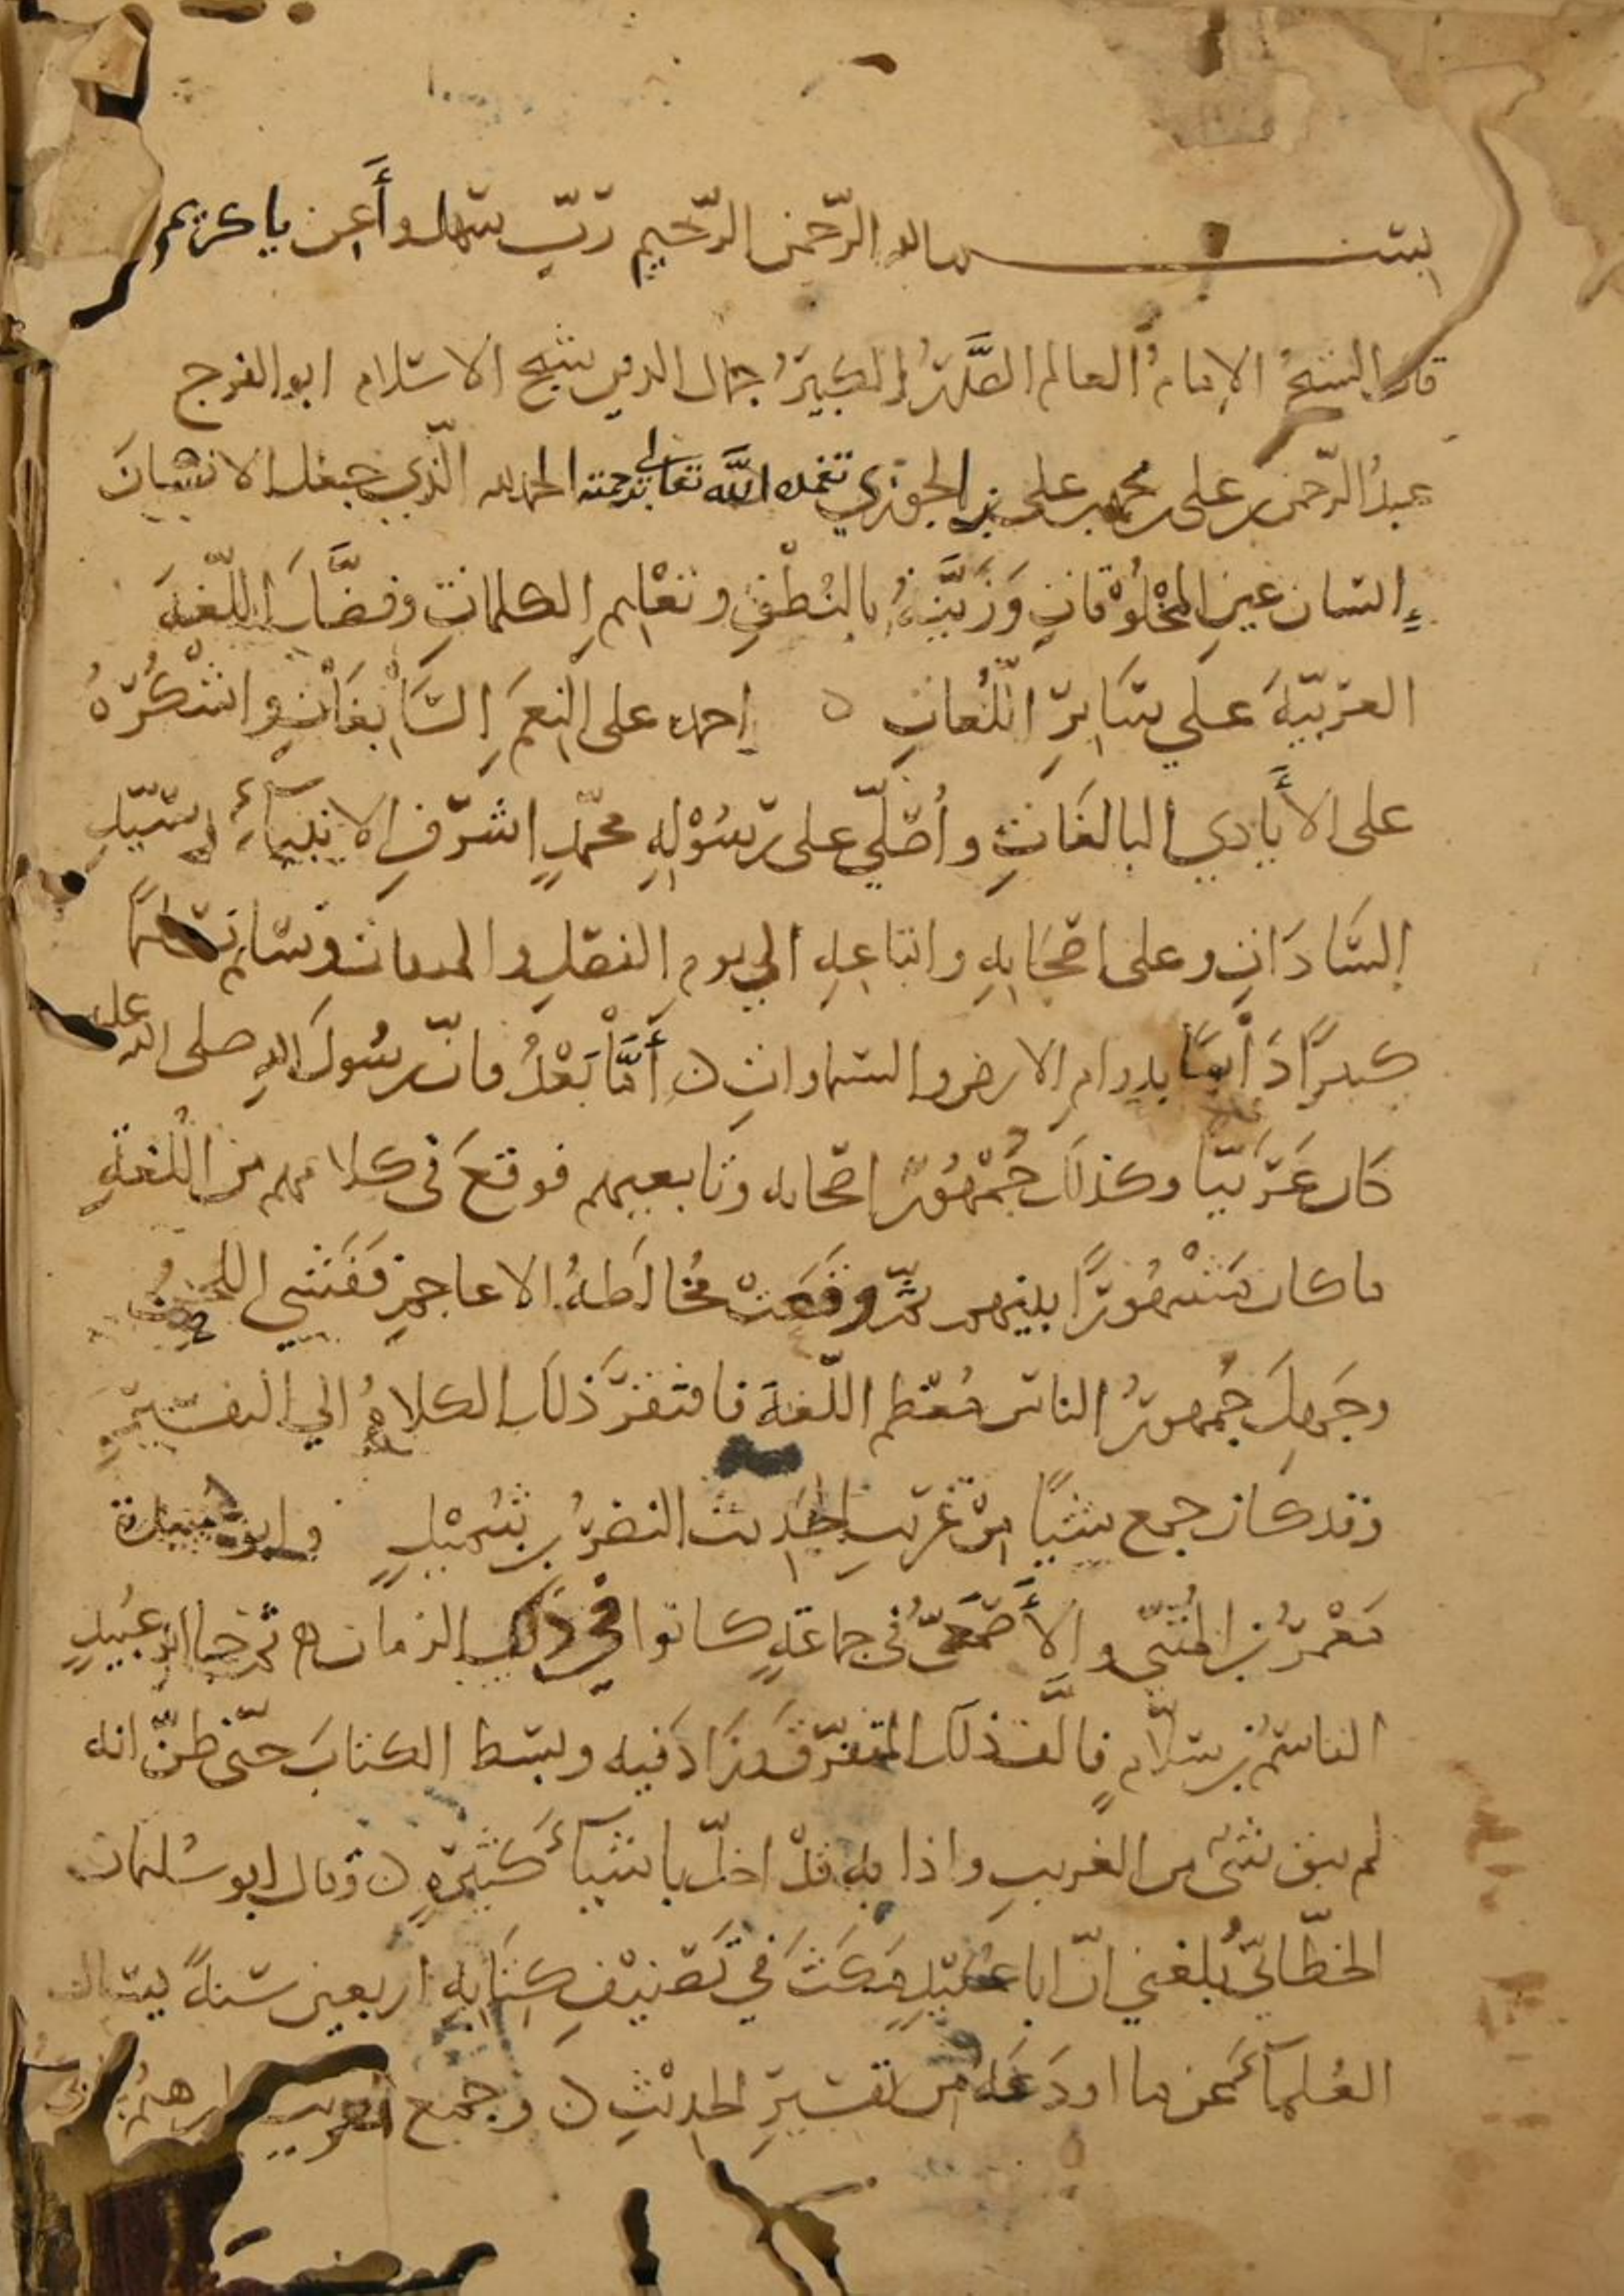 بسم الله الرحمن الرحيم رَبّ سَهّل وأَعِن يا كريم
قال الشيخُ الإمامُ العالم الصَّدرُ الكبيرُ جمال الدين شيخ الاسلام ابو الفرج
عبدُ الرّحمن بن على بن محمد بن على بن الجوزي تغمده الله تعالى برحمته الحمد لله الّذي جعل الانسانَ
إنسان عينِ المخْلُوْقاتِ وَزَيَّنَهُ بالنُطْقِ وتعْليمِ الكلماتِ وفضَّلَ اللّغةَ
العربيّةَ على سَايِرِ اللّغُاتِ ه احمده على النِعَمِ السَّابِغَاتِ واشْكُرُهُ
على الأَيادي البالغَاتِ واُصَلّي على رسُوْلِهِ محمّدٍ اشرَفِ الانبيآءِ وسَيّدِ
السَّادَاتِ وعلى اصحَابِهِ واتباعِهِ الي يوم الفصلِ والميقات وسَلم تسليمًا
كبيرًا دَائمًا بدوامِ الارض والسّماواتِ ه أَمَّا بَعْدُ فانّ رسُولَ اللهِ صلى الله عليه
كان عَرَبيّا وكذلك جُمْهُوْرُ اصحابه وتابعيهم فوقعَ في كلامهم من اللُغةِ
ما كان مَشْهُوْرًا بينهم ثمّ وقعَتْ مُخالَطةُ الاعاجِمِ فَفَشى اللحنُ
وجَهِلَ جُمهورُ الناسِ مُعْظم اللّغةِ فافتقرَ ذلك الكلامُ الي التفسيرِ
وقد كان جمع شيْئًا مِنْ غريبِ الحَدِيث النضرُ بن شُمَيْلٍ وابو عبيدة
مَعْمَرُ بن المُثَنّى والأَصْمَعِيّ في جماعةٍ كانوا في ذلك الزمان ه ثم جا ابو عُبيدٍ
القاسمُ بن سلّامٍ فالَّف ذلك المتفرّقَ وزَادَ فيه وبسَط الكتابَ حتّى ظنّ انه
لم يبق شئ من الغريبِ واذا به قدْ اخلّ باشيآءَ كثيرةٍ ه وقال ابو سُليمان
الخطّابيّ بلغني انّ ابا عُبَيْدٍ مَكَثَ في تَصْنِيْفِ كِتَابِهِ اربعين سَنةً يسال
العُلمآءَ عن ما اودَعَهُ من تفسيرِ الحدِيْثِ ه وجمع